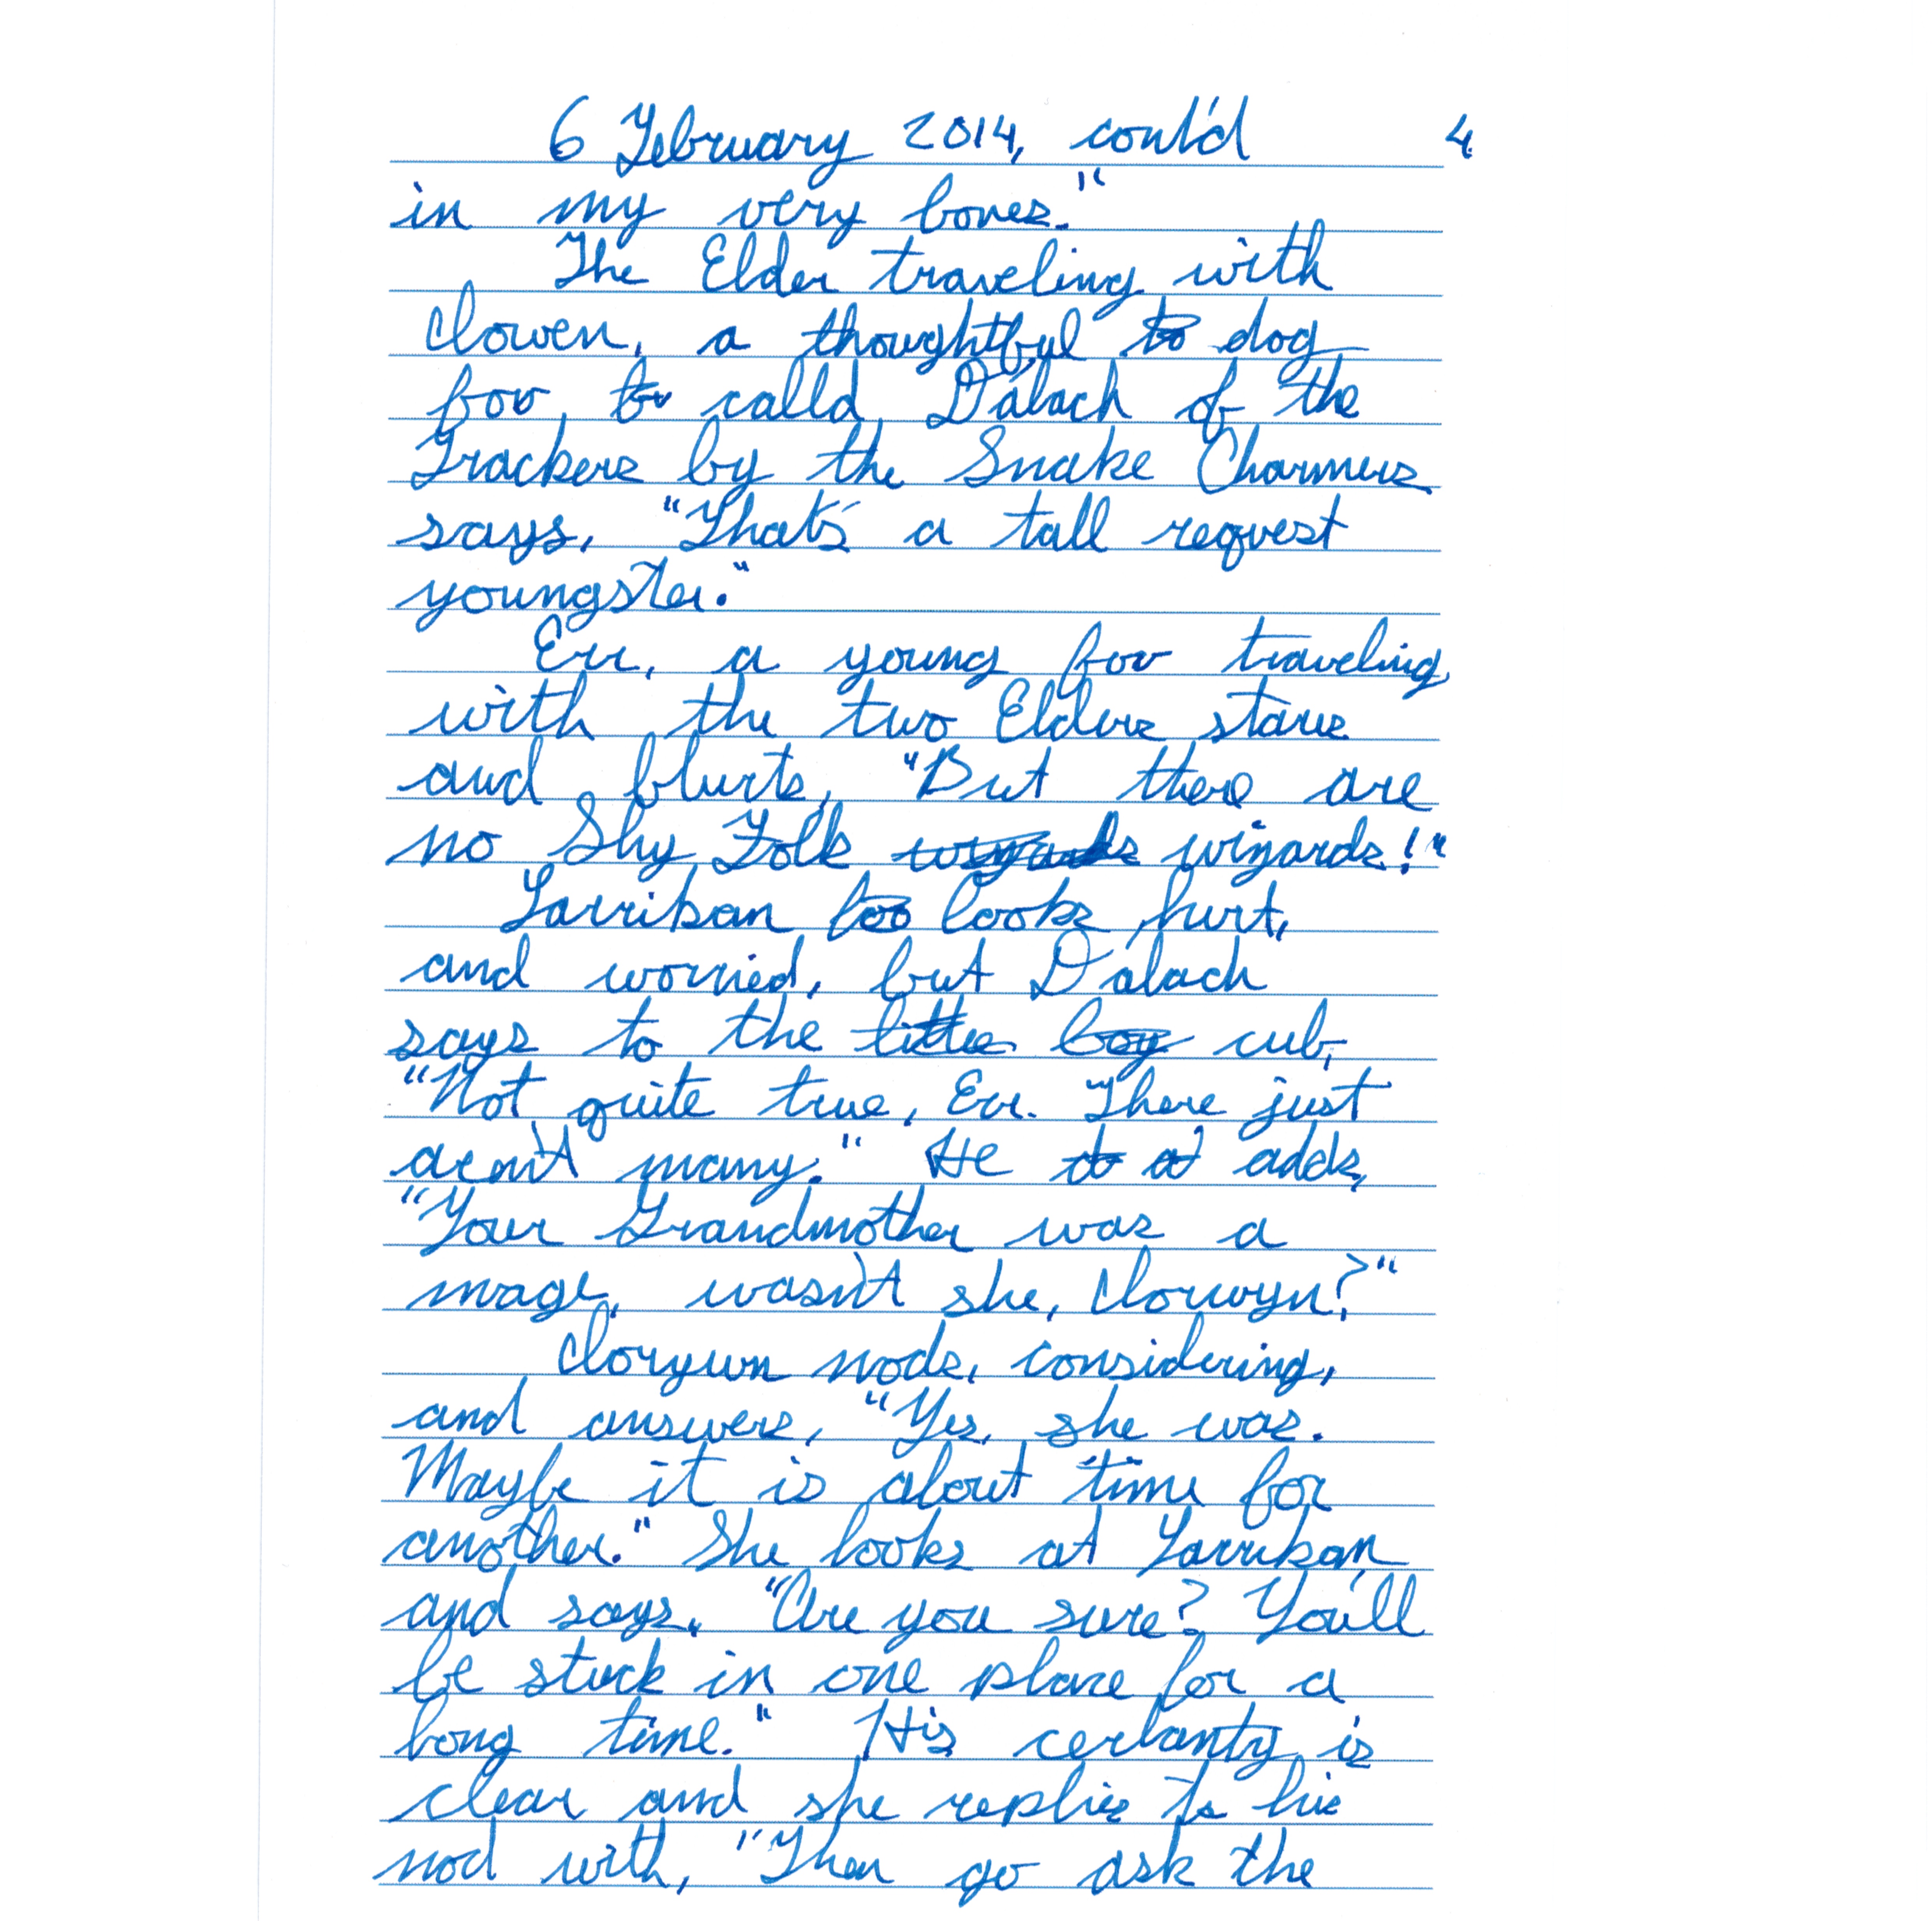 6 February 2014, cont'd 4
in my very bones."
The Elder traveling with
Clowen, a thoughtful to dog
fov to calld Dálach of the
Trackers by the Snake Charmers
says, "That's a tall request
youngster."
Err, a young fov traveling
with the two Elders stares
and blurts, "But there are
no Shy Folk wizards wizards!"
Larrikan loo looks hurt,
and worried, but Dálach
says to the little boy cub,
"Not quite true, Err. There just
aren't many." He a adds,
"Your Grandmother was a
mage, wasn't she, Clorwyn?"
Clorywn nods, considering,
and answers, "Yes, she was.
Maybe it is about time for
another." She looks at Larrikan
and says, "Are you sure? You'll
be stuck in one place for a
long time." His certanty is
clear and she replies to his
nod with, "Then go ask the